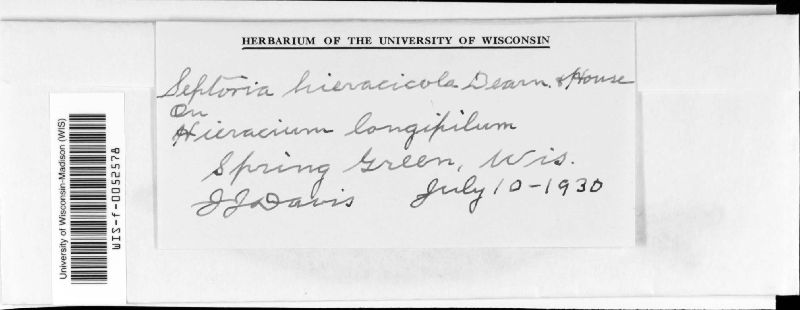 HERBARIUM OF THE UNIVERSITY OF WISCONSIN
Septoria hieracicola Dearn. & House
on
Hieracium longipilum
Spring Green, Wis.
JJDavis July 10-1930
University of Wisconsin-Madison (WIS)
WIS-f-0052578